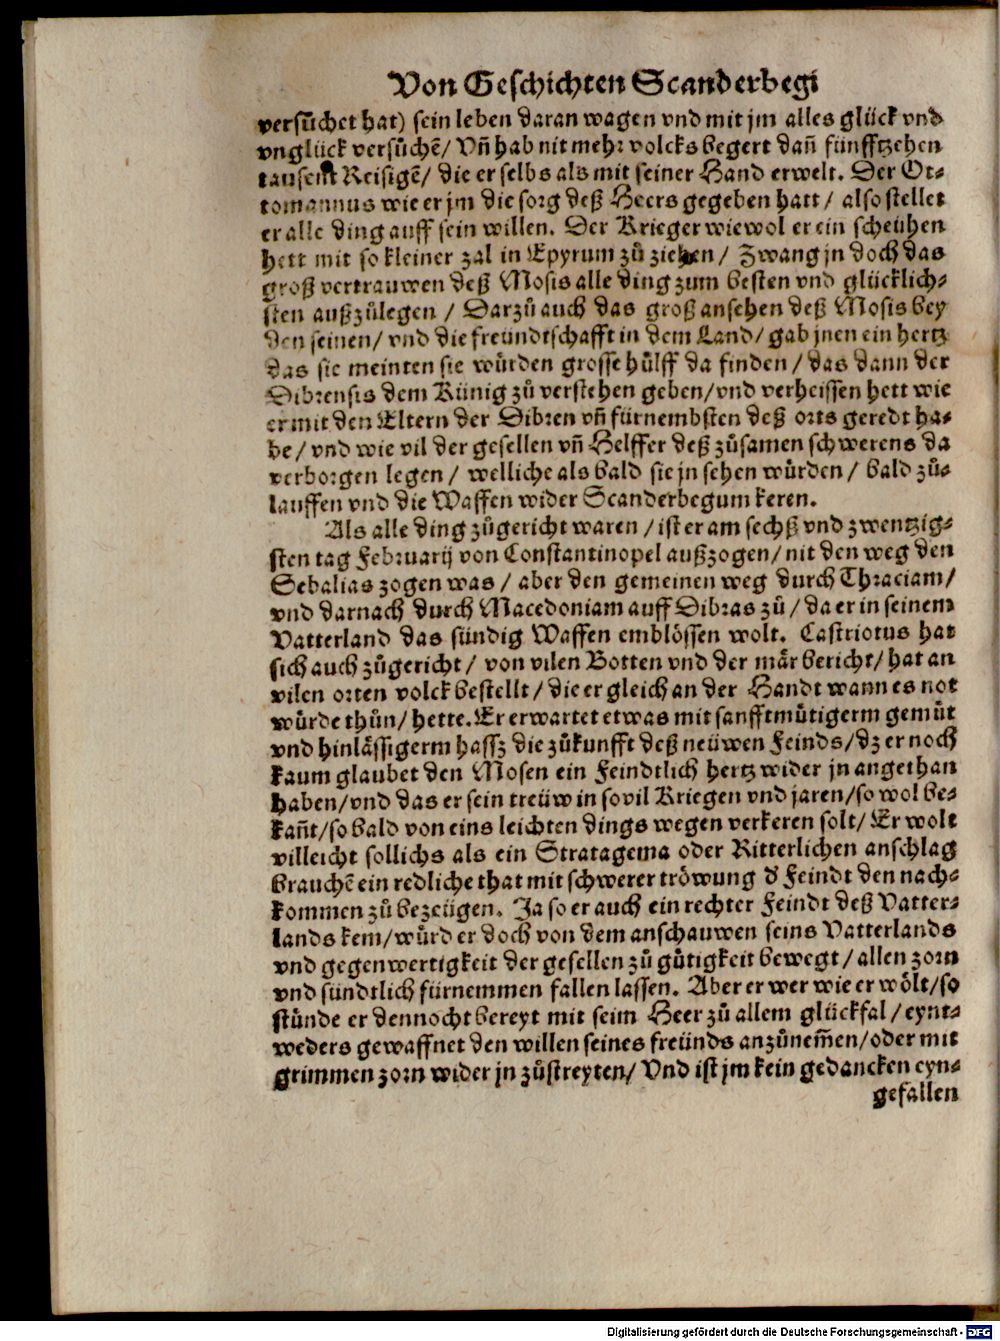 Von Geschichten Scanderbegi
versůchet hat) sein leben daran wagen vnd mit jm alles glück vnd
vnglück versůchẽ / Vñ hab nit mehr volcks begert dañ fünfftzehen
tausent Reisigẽ / die er selbs als mit seiner Hand erwelt. Der Ot-
tomannus wie er jm die sorg deß Heers gegeben hatt / also stellet
er alle ding auff sein willen. Der Krieger wiewol er ein scheühen
hett mit so kleiner zal in Epyrum zů ziehen / Zwang jn doch das
groß vertrauwen deß Mosis alle ding zum besten vnd glücklich-
sten außzůlegen / Darzů auch das groß ansehen deß Mosis bey
den seinen / vnd die freündtschafft in dem Land / gab jnen ein hertz
das sie meinten sie würden grosse hülff da finden / das dann der
Dibrensis dem Künig zů verstehen geben / vnd verheissen hett wie
er mit den Eltern der Dibren vñ fürnembsten deß orts geredt ha-
be / vnd wie vil der gesellen vñ Helffer deß zůsamen schwerens da
verborgen legen / welliche als bald sie jn sehen würden / bald zů-
lauffen vnd die Waffen wider Scanderbegum keren.
Als alle ding zůgericht waren / ist er am sechß vnd zwentzig-
sten tag Februarij von Constantinopel außzogen / nit den weg den
Sebalias zogen was / aber den gemeinen weg durch Thraciam /
vnd darnach durch Macedoniam auff Dibras zů / da er in seinem
Vatterland das sündig Waffen emblössen wolt. Castriotus hat
sich auch zůgericht / von vilen Botten vnd der mär bericht / hat an
vilen orten volck bestellt / die er gleich an der Handt wann es not
würde thůn / hette. Er erwartet etwas mit sanfftmůtigerm gemůt
vnd hinlässigerm hassz die zůkunfft deß neüwen Feinds / dz er noch
kaum glaubet den Mosen ein Feindtlich hertz wider jn angethan
haben / vnd das er sein treüw in so vil Kriegen vnd jaren / so wol be-
kañt / so bald von eins leichten dings wegen verkeren solt / Er wolt
villeicht sollichs als ein Stratagema oder Ritterlichen anschlag
brauchẽ ein redliche that mit schwerer tröwung d' Feindt den nach-
kommen zů bezeügen. Ja so er auch ein rechter Feindt deß Vatter-
lands kem / würd er doch von dem anschauwen seins Vatterlands
vnd gegenwertigkeit der gesellen zů gůtigkeit bewegt / allen zorn
vnd sündtlich fürnemmen fallen lassen. Aber er wer wie er wölt / so
stünde er dennocht bereyt mit seim Heer zů allem glückfal / eynt-
weders gewaffnet den willen seines freünds anzůnem̃en / oder mit
grimmen zorn wider jn zůstreyten / Vnd ist jm kein gedancken eyn-
gefallen
Digitalisierung gefördert durch die Deutsche Forschungsgemeinschaft - DFG